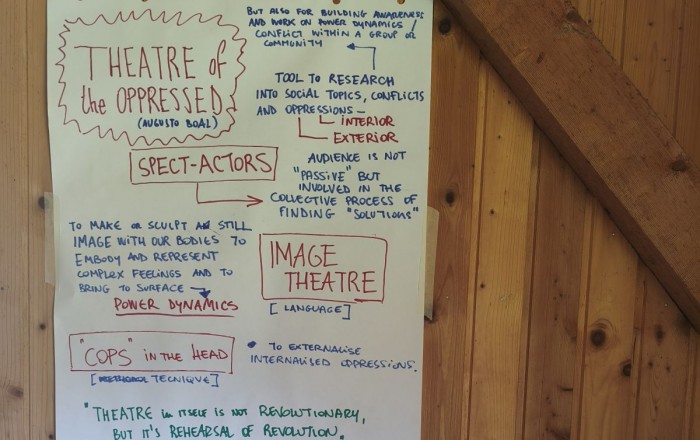 THEATRE of
the OPPRESSED
(AUGUSTO BOAL)
BUT ALSO FOR BUILDING AWARENESS
AND WORK ON POWER DYNAMICS /
CONFLICT WITHIN A GROUP OR
COMMUNITY
TOOL TO RESEARCH
INTO SOCIAL TOPICS, CONFLICTS
AND OPPRESSIONS -
INTERIOR
EXTERIOR
SPECT-ACTORS
AUDIENCE IS NOT
"PASSIVE" BUT
INVOLVED IN THE
COLLECTIVE PROCESS OF
FINDING "SOLUTIONS"
TO MAKE OR SCULPT A STILL
IMAGE WITH OUR BODIES TO
EMBODY AND REPRESENT
COMPLEX FEELINGS AND TO
BRING TO SURFACE
POWER DYNAMICS
IMAGE
THEATRE
[LANGUAGE]
"COPS" IN THE HEAD
[TECNIQUE]
• TO EXTERNALISE
INTERNALISED OPPRESSIONS.
"THEATRE in ITSELF IS NOT REVOLUTIONARY,
BUT IT'S REHEARSAL OF REVOLUTION"